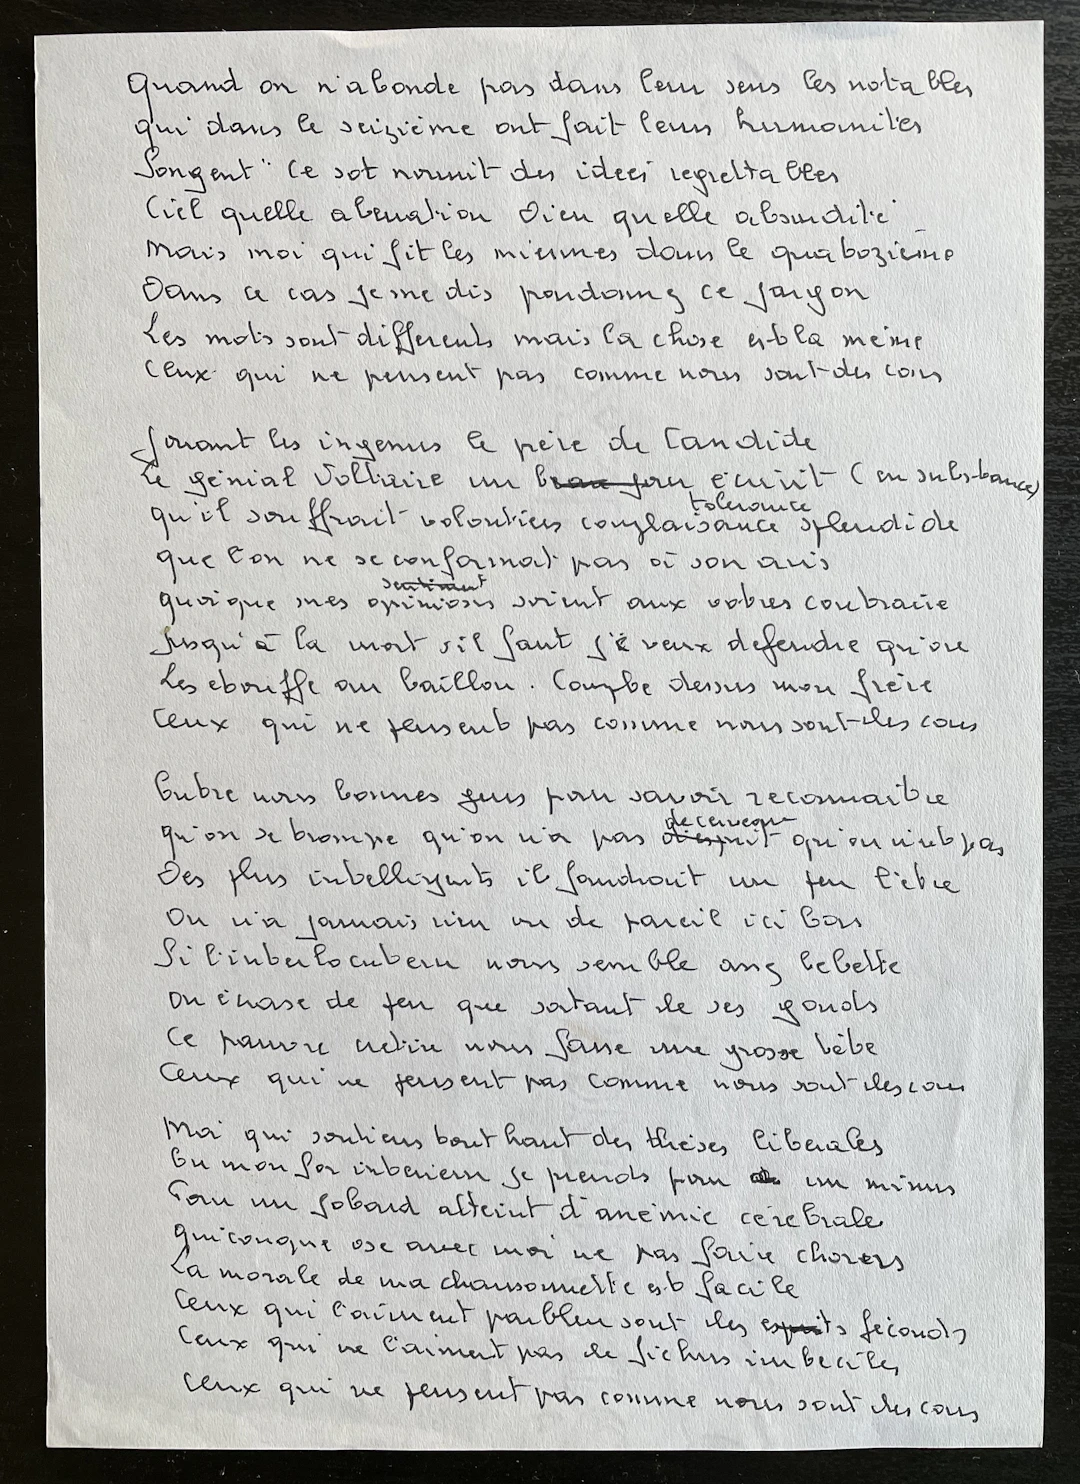 Quand on n'abonde pas dans leur sens les notables
qui dans le seizième ont fait leurs humanités
Songent " Ce sot nourrit des idées regrettables
Ciel quelle aberration Dieu quelle absurdité
Mais moi qui fit les miennes dans le quatozième
Dans ce cas je me dis pardonnez ce jargon
Les mots sont differents mais la chose est la même
Ceux qui ne pensent pas comme nous sont des cons
Jouant les ingenus le père de Candide
Le génial Voltaire un écrivit ( en substance)
tolerance
qu'il souffrait volontiers complaisance splendide
que l'on ne se conformat pas à son avis
sentiment
quoique mes opinions soient aux votres contraire
Jusqu'à la mort s'il faut je veux defendre qu'on
Les etouffe au baillon. Tombe dessus mon frère
Ceux qui ne pensent pas comme nous sont des cons
Entre nous bonnes gens pour savoir reconnaitre
de cerveau
qu'on se trompe qu'on n'a pas d'esprit qu'on n'est pas
Des plus intelligents il faudrait un peu l'être
On n'a jamais rien vu de pareil ici bas
Si l'interlocuteur nous semble assez bebette
On écrase de peu que sortant de ses gonds
Ce pauvre cretin nous fasse une grosse bête
Ceux qui ne pensent pas comme nous sont des cons
Moi qui soutiens tout haut des thèses liberales
En mon for interieur je prends pour un minus
Pour un jobard atteint d'anémie cérébrale
quiconque ose avec moi ne pas faire chorus
La morale de ma chansonnette est facile
Ceux qui l'aiment parbleu sont des esprits féconds
Ceux qui ne l'aiment pas de fichus imbeciles
Ceux qui ne pensent pas comme nous sont des cons